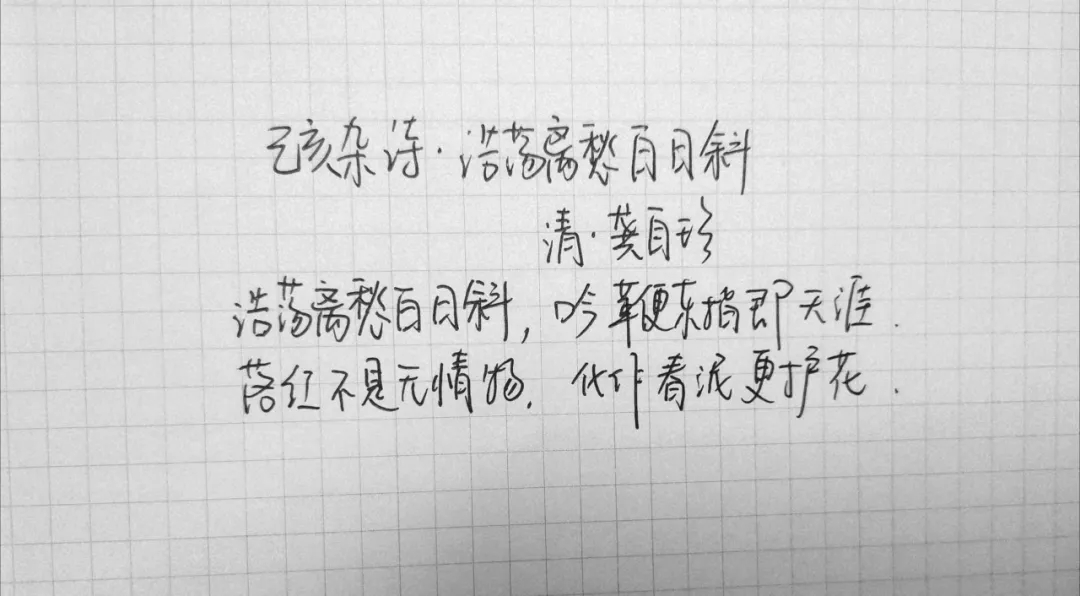 己亥杂诗·浩荡离愁百日斜
清·龚自珍
浩荡离愁百日斜,吟鞭东指即天涯.
落红不是无情物,化作春泥更护花.